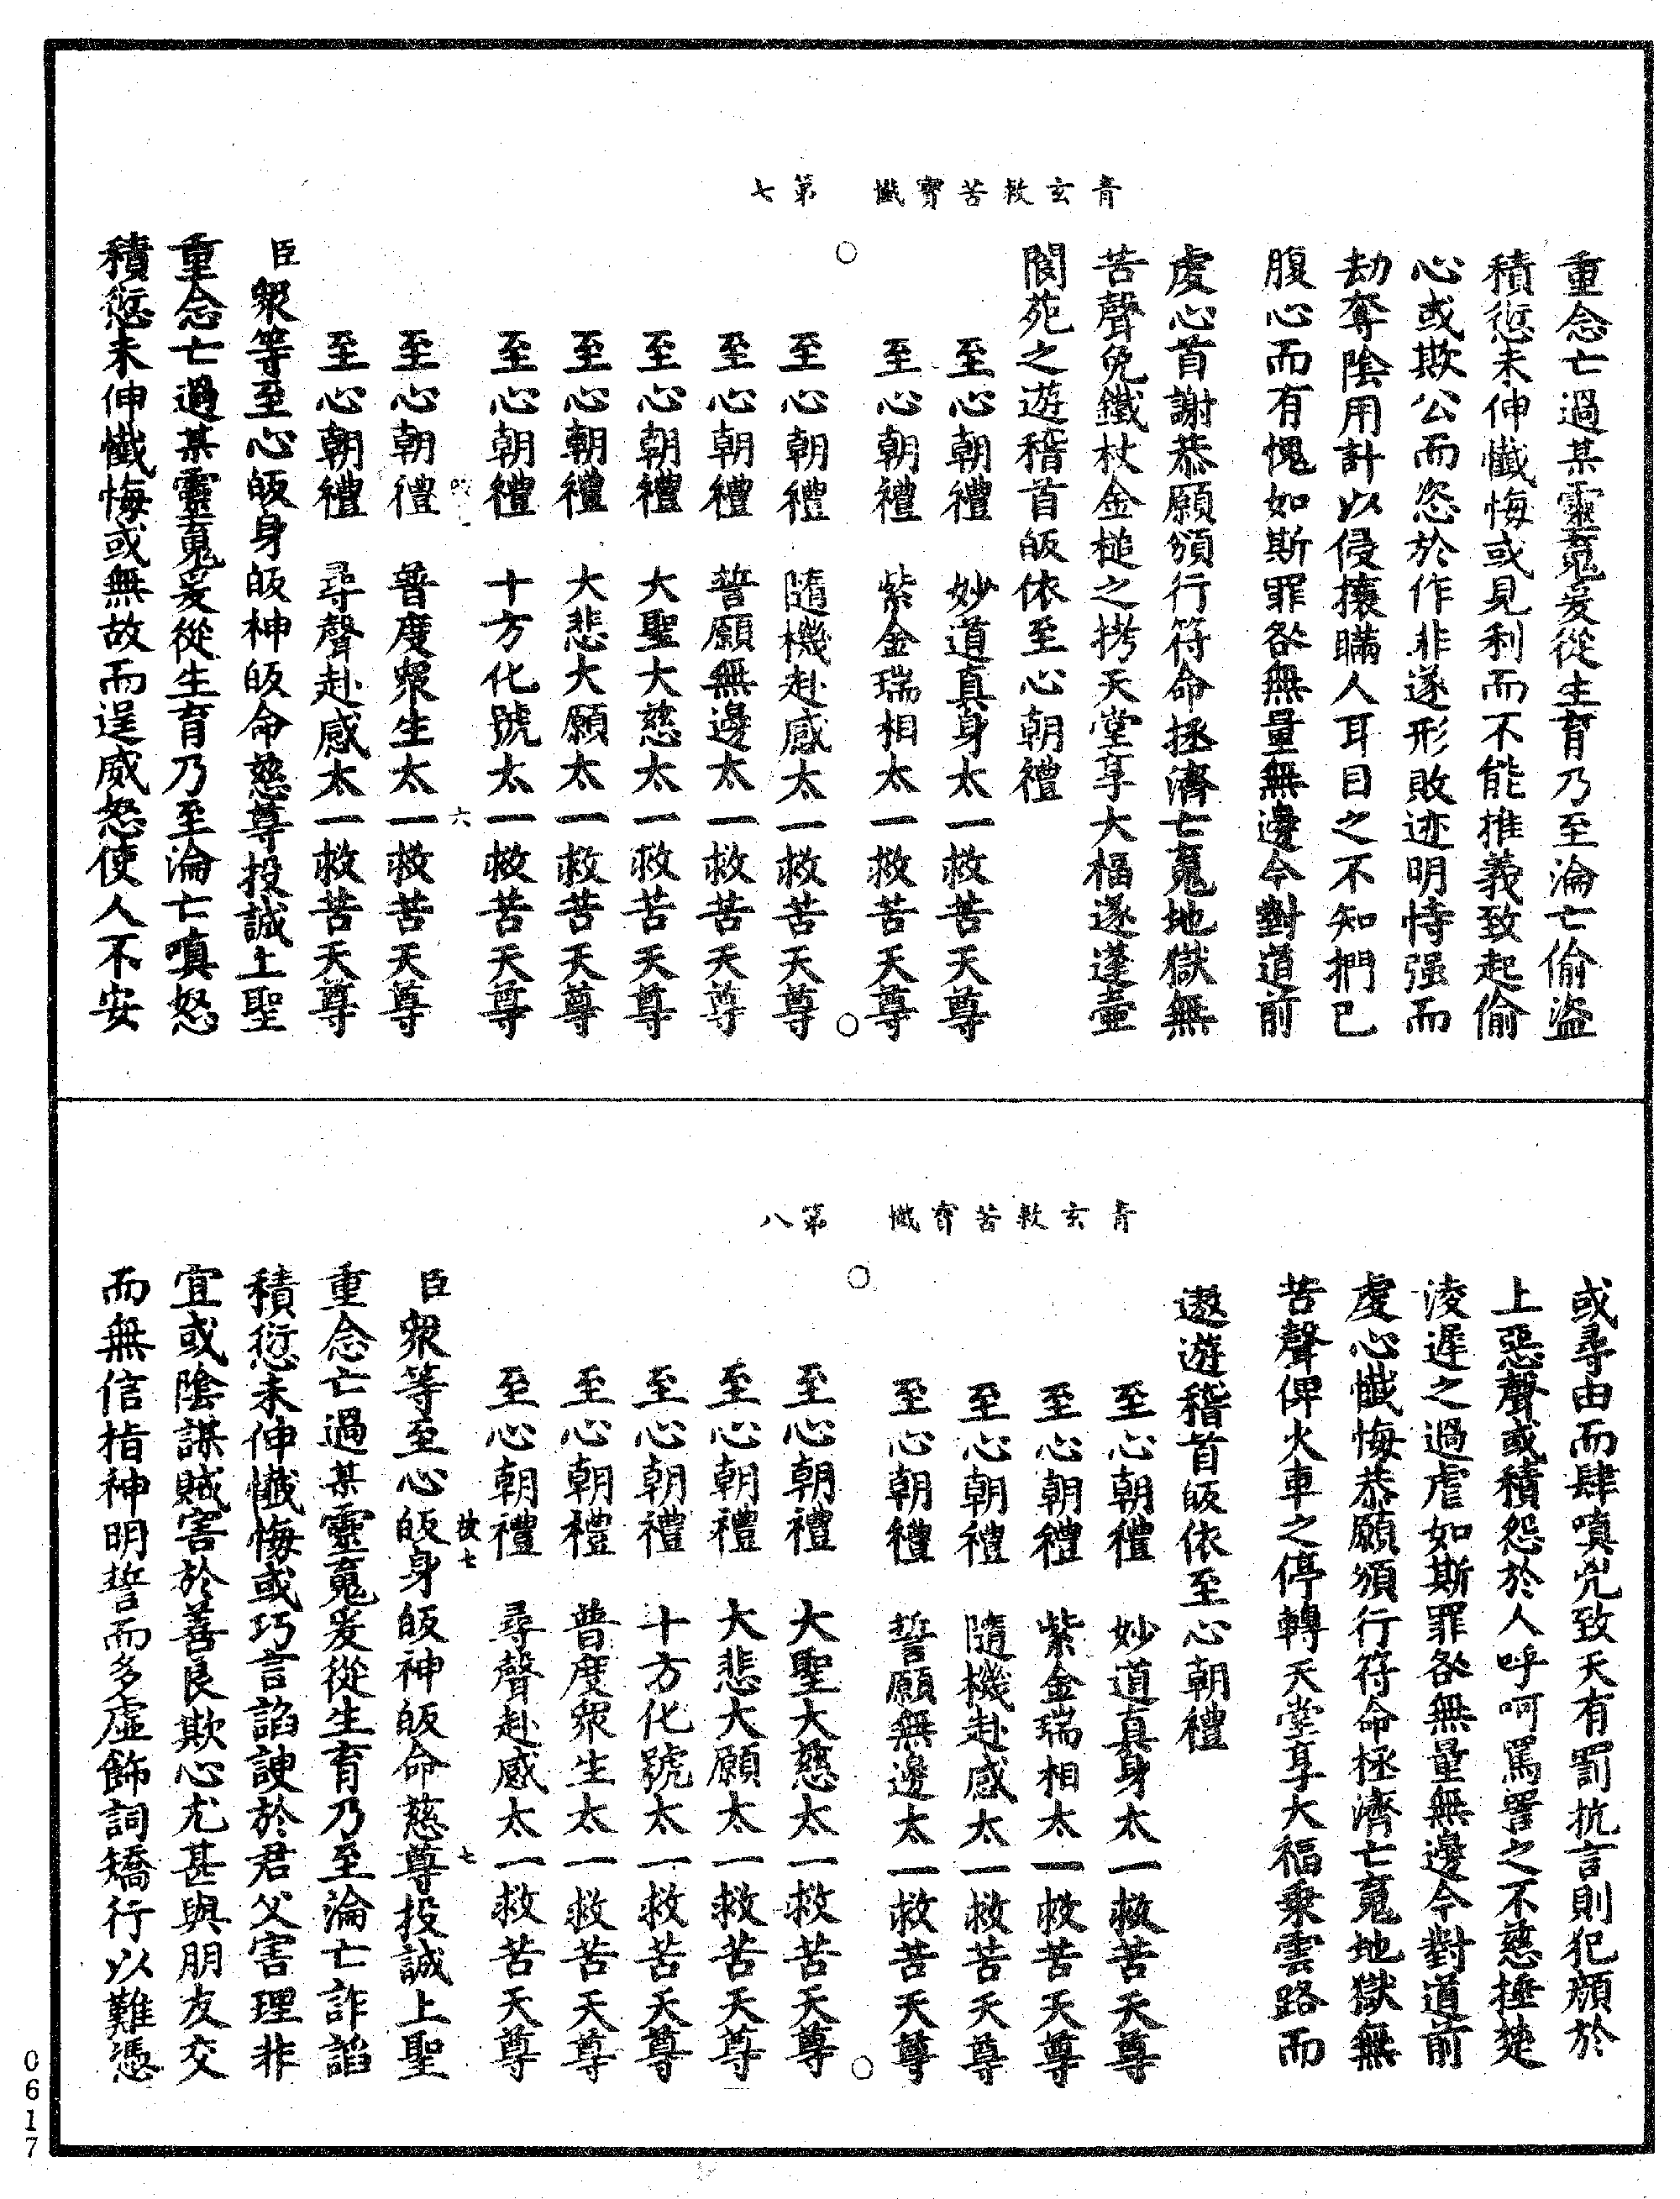 青玄救苦寳懺　第七
重念亡過某靈䰟爰從生育乃至淪亡偷盜
積愆未伸懺悔或見利而不能推義致起偷
心或欺公而恣於作非遂形敗迹明恃强而
劫奪陰用計以侵攘瞞人耳目之不知捫已
腹心而有愧如斯罪咎無量無邊今對道前
虔心首謝恭願頒行符命拯濟亡䰟地獄無
苦聲免鐵杖金槌之拷天堂享大福遂蓬壺
閬苑之遊稽首皈依至心朝禮
至心朝禮　妙道真身太一救苦天尊
至心朝禮　紫金瑞相太一救苦天尊
至心朝禮　隨機赴感太一救苦天尊
至心朝禮　誓願無邊太一救苦天尊
至心朝禮　大聖大慈太一救苦天尊
至心朝禮　大悲大願太一救苦天尊
至心朝禮　十方化號太一救苦天尊
六
至心朝禮　普度眾生太一救苦天尊
至心朝禮　尋聲赴感太一救苦天尊
臣眾等至心皈身皈神皈命慈尊投誠上聖
重念亡過某靈䰟爰從生育乃至淪亡嗔怒
積愆未伸懺悔或無故而逞威怒使人不安
青玄救苦寳懺　第八
或尋由而肆嗔兇致天有罰抗言則犯顔於
上惡聲或積怨於人呼呵罵詈之不慈捶楚
淩遲之過虐如斯罪咎無量無邊今對道前
虔心懺悔恭願頒行符命拯濟亡䰟地獄無
苦聲俾火車之停轉天堂享大福乗雲路而
遨遊稽首皈依至心朝禮
至心朝禮　妙道真身太一救苦天尊
至心朝禮　紫金瑞相太一救苦天尊
至心朝禮　隨機赴感太一救苦天尊
至心朝禮　誓願無邊太一救苦天尊
至心朝禮　大聖大慈太一救苦天尊
至心朝禮　大悲大願太一救苦天尊
至心朝禮　十方化號太一救苦天尊
至心朝禮　普度眾生太一救苦天尊
至心朝禮　尋聲赴感太一救苦天尊
七　七
臣眾等至心皈身皈神皈命慈尊投誠上聖
重念亡過某靈䰟爰從生育乃至淪亡詐諂
積愆未伸懺悔或巧言諂諛於君父害理非
宜或陰謀賊害於善良欺心尤甚與朋友交
而無信指神明誓而多虛飾詞矯行以難憑
0617